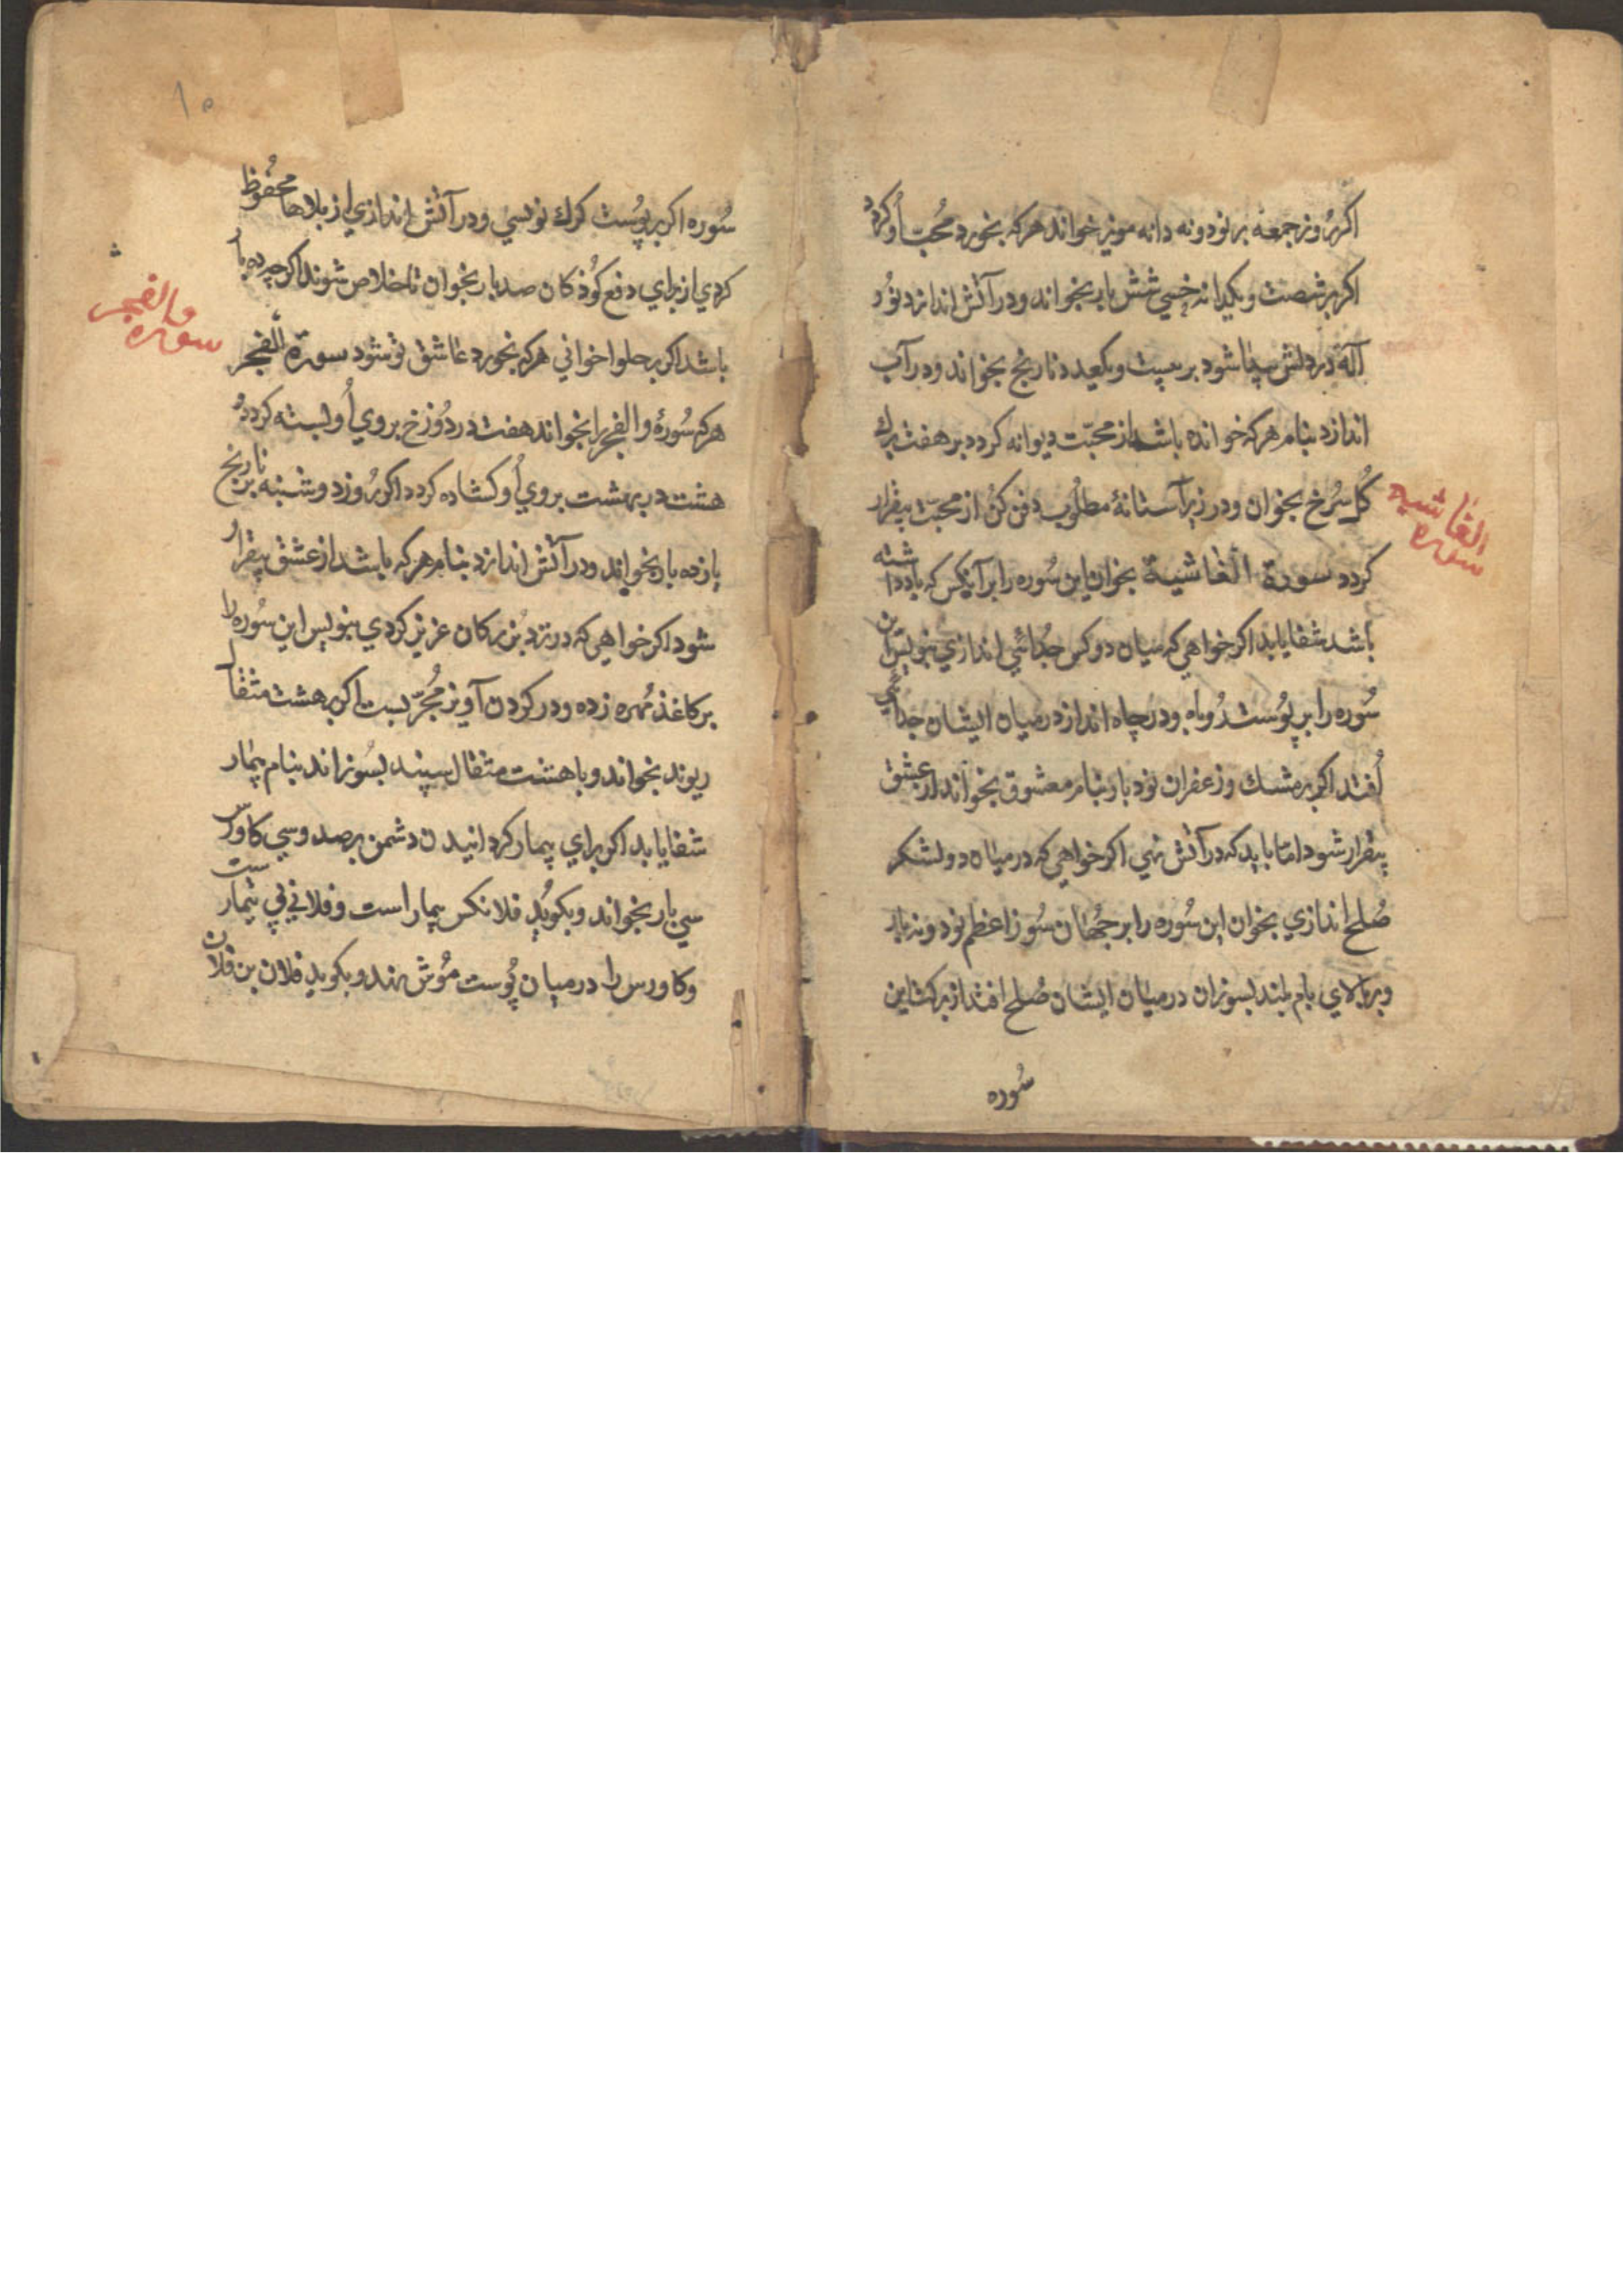 اكر روز جمعه بر نود و نه دانه مويز خواند هركه بخورد محُبّ اُو كردد
اكر بر شصت و يكدانه خسي شش بار بخواند و در آتش اندازد نُور
آله در دلش پيدا شود بر بيست و يكعدد نارنج بخواند و در آب
اندازد بنام هركه خوانده باشد از محبّت ديوانه كردد بر هفت برك
كُل سُرخ بخوان و در زير آستانهٔ مطلُوب دفن كنُ از محبّت بيقرار
كردد سورة الغاشية بخوان اين سُوره را بر آنكس كه باد داشته
باشد شفا يابد اكر خواهي كه ميان دو كس جُدائي اندازي بنويس اين
سُوره را بر پُوست رُوباه و در چاه انداز در ميان ايشان جدائي
اُفتد اكر بر مشك و زعفران نود بار بنام معشوق بخواند از عشق
بيقرار شود امّا بايد كه در آتش نهي اكر خواهي كه در ميان دو لشكر
صُلح اندازي بخوان اين سُوره را بر جهان سُوز اعظم نود و نه بار
و بر بالاي بام بلند بسوزان در ميان ايشان صُلح افتد از بركت اين
سُوره
الغاشيه
سوره
١٥
سُوره اكر بر پُوست كرك نويسي و در آتش اندازي از بلاها محفُوظ
كردي از براي دفع كُوذكان صد بار بخوان تا خلاص شوند اكر چه ده با
باشد اكر بر حلوا خواني هركه بخورد عاشق تو شود سورة الفجر
هركه سُورهٔ والفجر را بخواند هفت در دُوزخ بروي اُو بسته كردد و
هشت در بهشت بروي اُو كشاده كردد اكر رُوز دوشنبه بر نارنج
يازده بار بخواند و در آتش اندازد بنام هركه باشد از عشق بيقرار
شود اكر خواهي كه در نزد بُزركان عزيز كردي بنويس اين سُوره را
بر كاغذ مُهره زده و در كردن آويز مُجرّبست اكر بر هشت مثقال
ريوند بخواند و با هشت مثقال سپند بسُوزاند بنام بيمار
شفا يابد اكر براي بيمار كردانيدن دشمن بر صد و سي كاورس
سي بار بخواند و بكويد فلانكس بيمار است و فلاني بيمارست
و كاورس را در ميان پُوست مُوش نهد و بكويد فلان بن فلان
والفجر
سوره